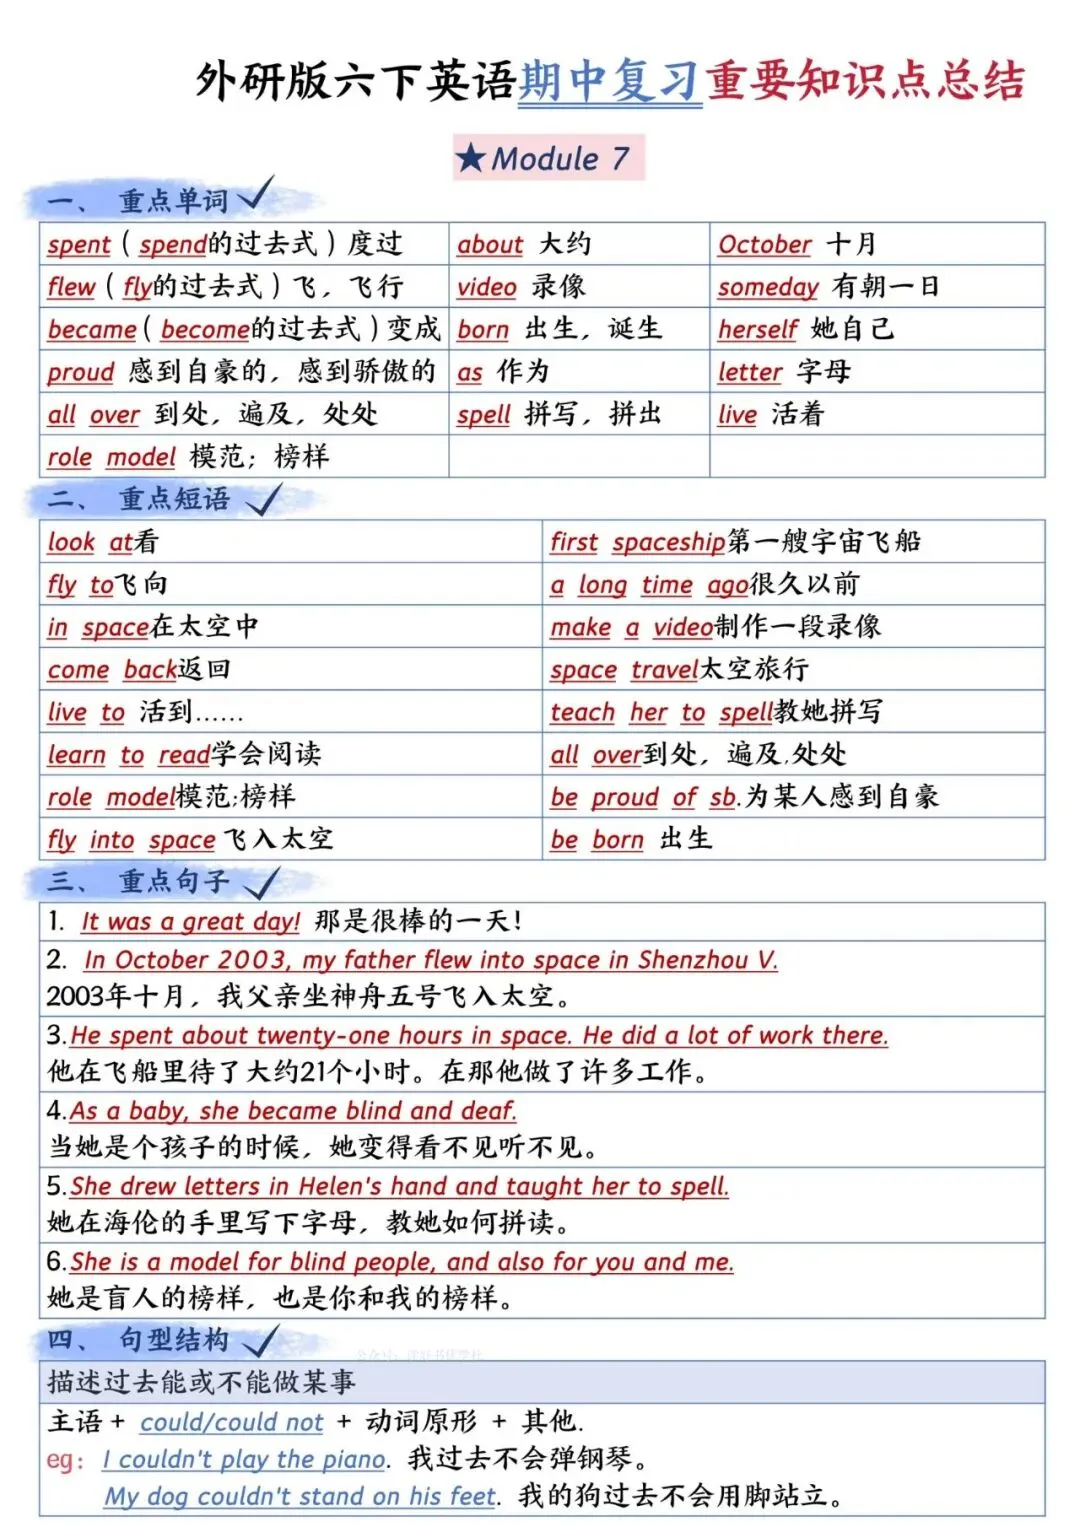 外研版六下英语期中复习重要知识点总结
★Module 7
一、 重点单词
spent（spend的过去式）度过 about 大约 October 十月
flew（fly的过去式）飞，飞行 video 录像 someday 有朝一日
became（become的过去式）变成 born 出生，诞生 herself 她自己
proud 感到自豪的，感到骄傲的 as 作为 letter 字母
all over 到处，遍及，处处 spell 拼写，拼出 live 活着
role model 模范；榜样
二、 重点短语
look at看 first spaceship第一艘宇宙飞船
fly to飞向 a long time ago很久以前
in space在太空中 make a video制作一段录像
come back返回 space travel太空旅行
live to 活到…… teach her to spell教她拼写
learn to read学会阅读 all over到处，遍及,处处
role model模范;榜样 be proud of sb.为某人感到自豪
fly into space 飞入太空 be born 出生
三、 重点句子
1. It was a great day! 那是很棒的一天!
2. In October 2003, my father flew into space in Shenzhou V.
2003年十月，我父亲坐神舟五号飞入太空。
3.He spent about twenty-one hours in space. He did a lot of work there.
他在飞船里待了大约21个小时。在那他做了许多工作。
4.As a baby, she became blind and deaf.
当她是个孩子的时候，她变得看不见听不见。
5.She drew letters in Helen's hand and taught her to spell.
她在海伦的手里写下字母，教她如何拼读。
6.She is a model for blind people, and also for you and me.
她是盲人的榜样，也是你和我的榜样。
四、 句型结构
描述过去能或不能做某事
主语 + could/could not + 动词原形 + 其他.
eg：I couldn't play the piano. 我过去不会弹钢琴。
My dog couldn't stand on his feet. 我的狗过去不会用脚站立。